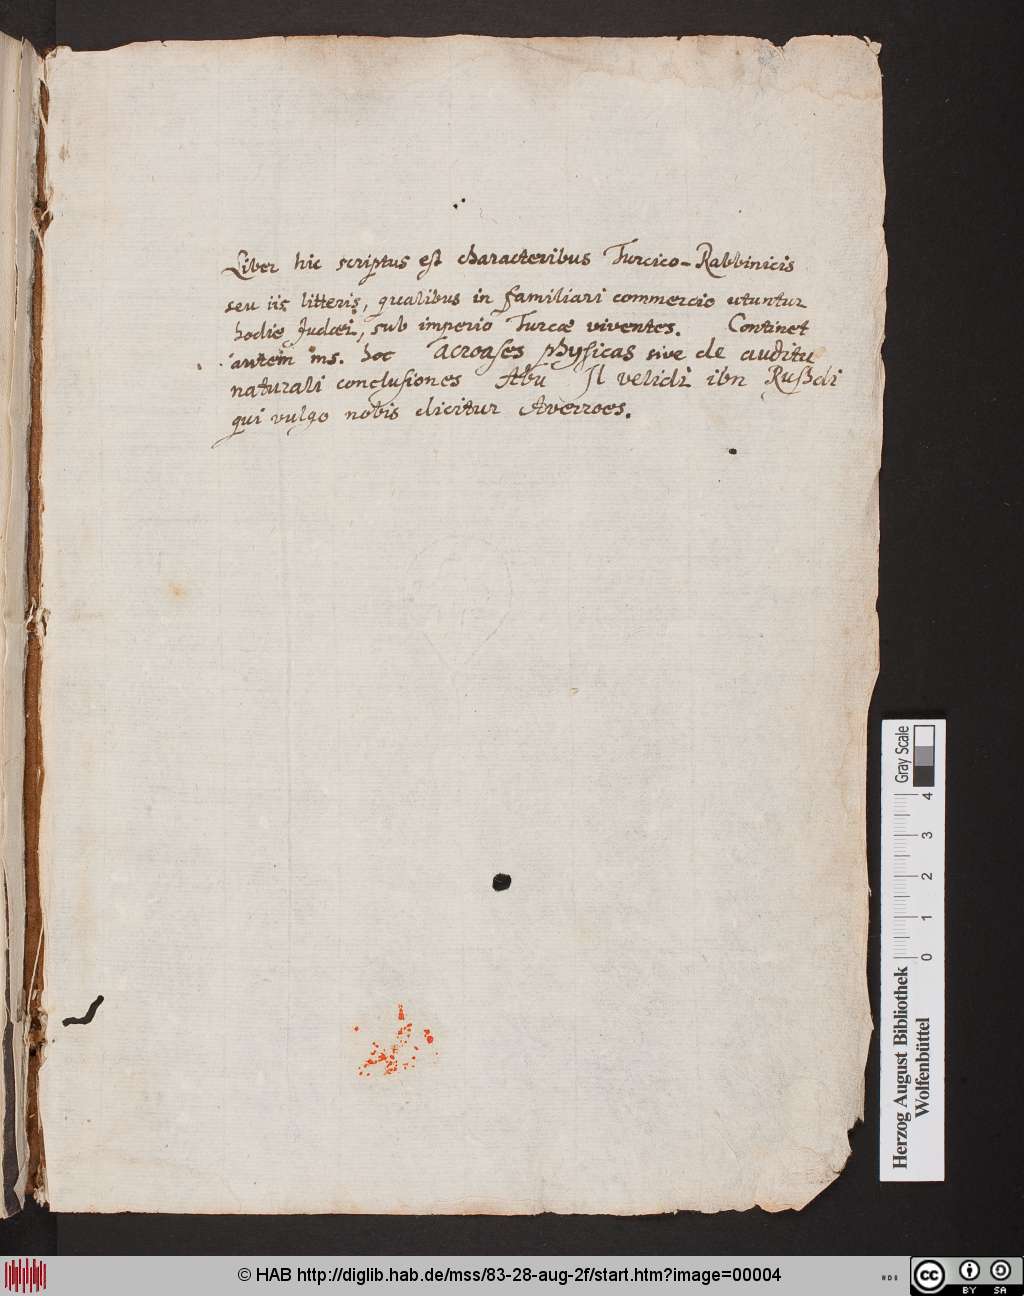 Liber hic scriptus est characteribus Turcico-Rabbinicis
seu iis litteris, qualibus in familiari commercio utuntur
hodie Judæi, sub imperio Turcæ viventes. Continet
autem ms. hoc Acroases physicas sive de auditu
naturali conclusiones Abu Il velidi ibn Rußdi
qui vulgo nobis dicitur Averroes.
Gray Scale
0 1 2 3 4
Herzog August Bibliothek
Wolfenbüttel
© HAB http://diglib.hab.de/mss/83-28-aug-2f/start.htm?image=00004
cc BY SA